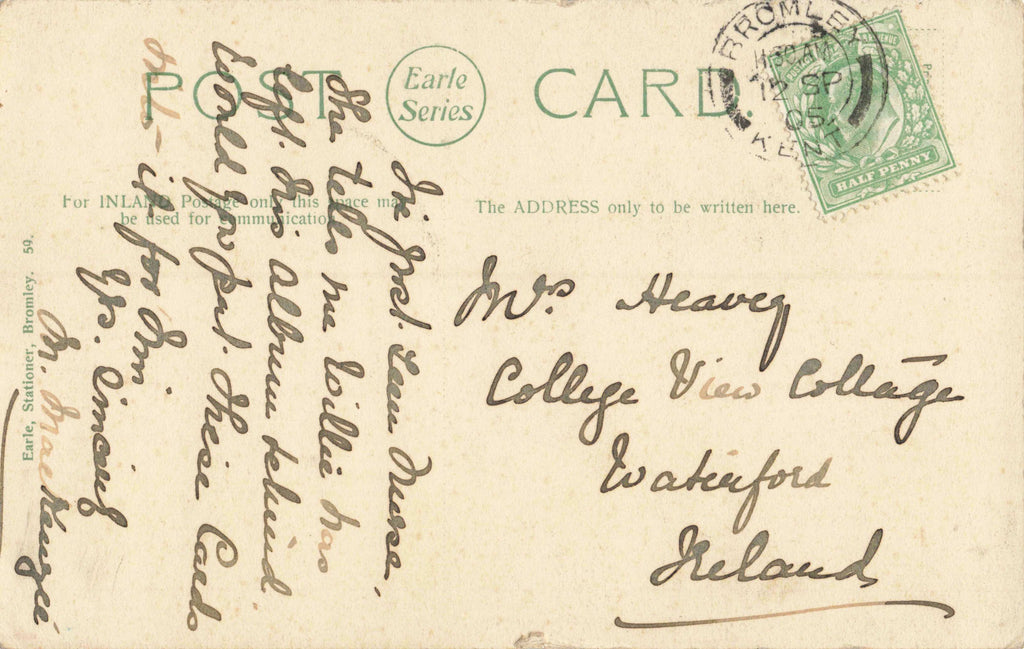 POST CARD.
Earle
Series
BROMLEY
11 30 AM
12 SP
05
KENT
HALF PENNY
For INLAND Postage only this space may
be used for communication.
The ADDRESS only to be written here.
Earle, Stationer, Bromley. 59.
I've just seen Nurse.
She tells me Willie has
left his album behind.
Would you put these Cards
into it for him
Yrs. Sincerely
M. MacKenzie
Mrs Heavey
College View Cottage
Waterford
Ireland